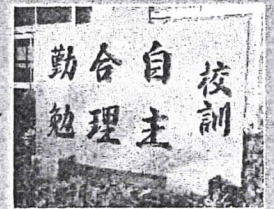 校訓
自主
合理
勤勉